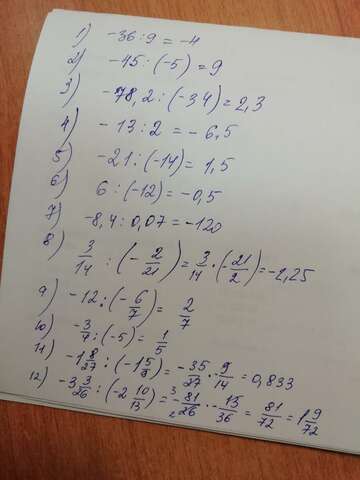 1) -36:9=-4
2) -45:(-5)=9
3) -78,2:(-34)=2,3
4) -13:2=-6,5
5) -21:(-14)=1,5
6) 6:(-12)=-0,5
7) -8,4:0,07=-120
8) 3/14:(-2/21)=3/14·(-21/2)=-2,25
9) -12:(-6/7)= 2/7
10) -3/4:(-5)=1/5
11) -1 8/27:(-1 5/9)=-35/27·9/14=0,833
12) -3 3/26:(-2 10/13)=-81/26·-13/36=81/72=1 9/72